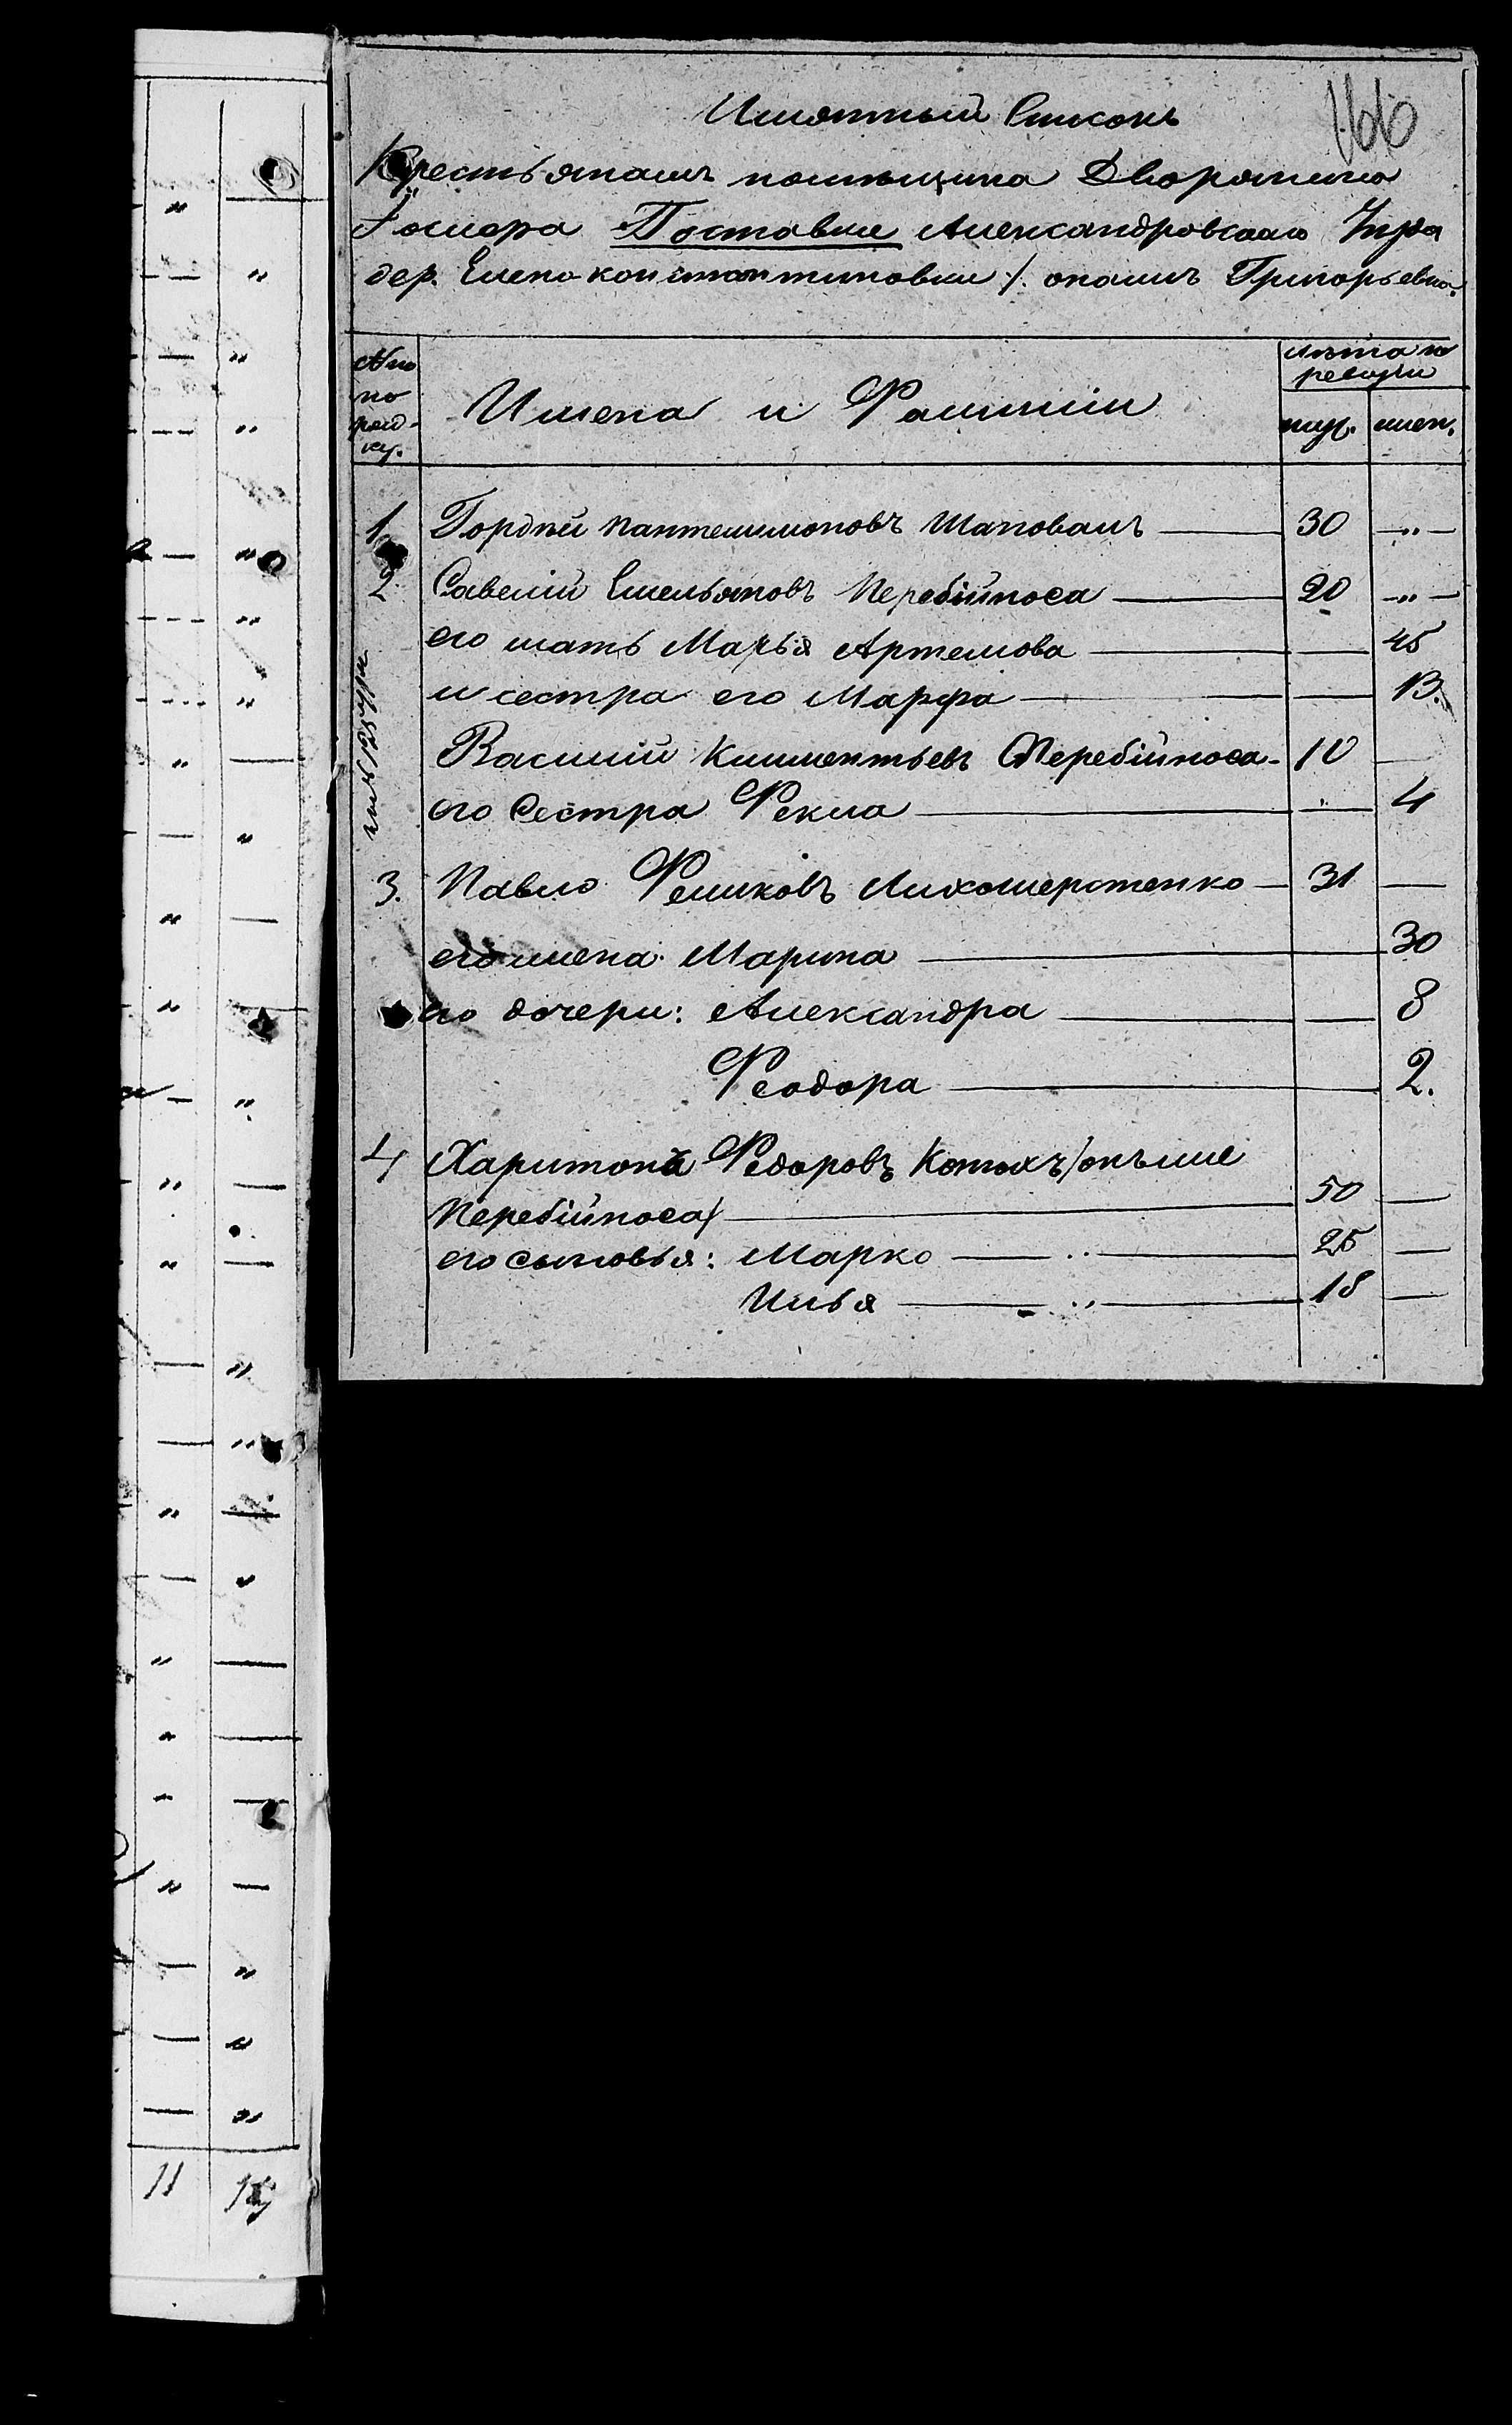 166
Имянный Списокъ
Крестьянамъ помѣщика Дворянина
Госнера Поставки Александровскаго Уѣзда
дер. Еленоконстантиновки /: онаже Григорьевка
№№ по поряд-ку.
Имена и Фамиліи
лѣта по ревизіи
муж. жен.
1 Гордѣй Пантелимоновъ Шаповалъ 30 „
2 Савелій Емельяновъ Перебійноса 20 „
его мать Марья Артемова 45
и сестра его Марфа 13.
Василій Климентьевъ Перебійноса 10
его Сестра Фекла „ 4
3. Павло Феликовъ Лихошерстенко 31
его жена Марина 30
его дочери: Александра 8
Феодора 2.
4 Харитонъ Федоровъ Котохъ /онъже
Перебійноса/ 50
его сыновья: Марко „ 25
Илья „ 18
11